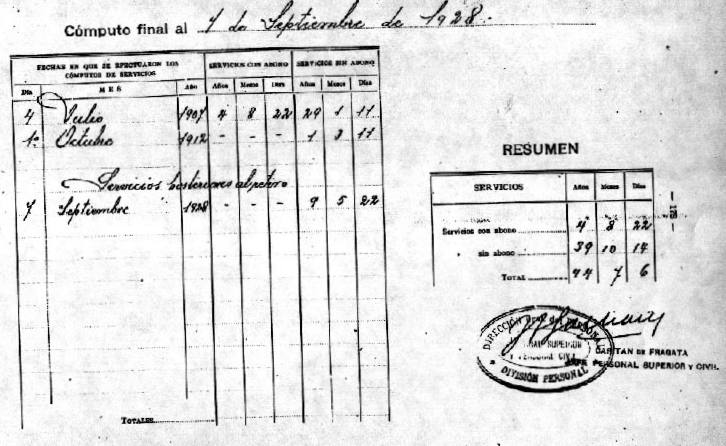 Cómputo final al 7 de Septiembre de 1928.
FECHAS EN QUE SE EFECTUARON LOS CÓMPUTOS DE SERVICIOS
SERVICIOS CON ABONO
SERVICIOS SIN ABONO
Día MES Año Años Meses Días Años Meses Días
4 Julio 1907 4 8 22 29 1 11
1º Octubre 1912 - - - 1 3 11
Servicios posteriores al retiro
7 Septiembre 1928 - - - 9 5 22
TOTALES
RESUMEN
SERVICIOS Años Meses Días
Servicios con abono 4 8 22
" sin abono 39 10 14
TOTAL 44 7 6
DIRECCIÓN GRAL DEL PERSONAL
PERSONAL SUPERIOR
Y PERSONAL CIVIL
DIVISIÓN PERSONAL
CAPITAN DE FRAGATA
JEFE PERSONAL SUPERIOR Y CIVIL